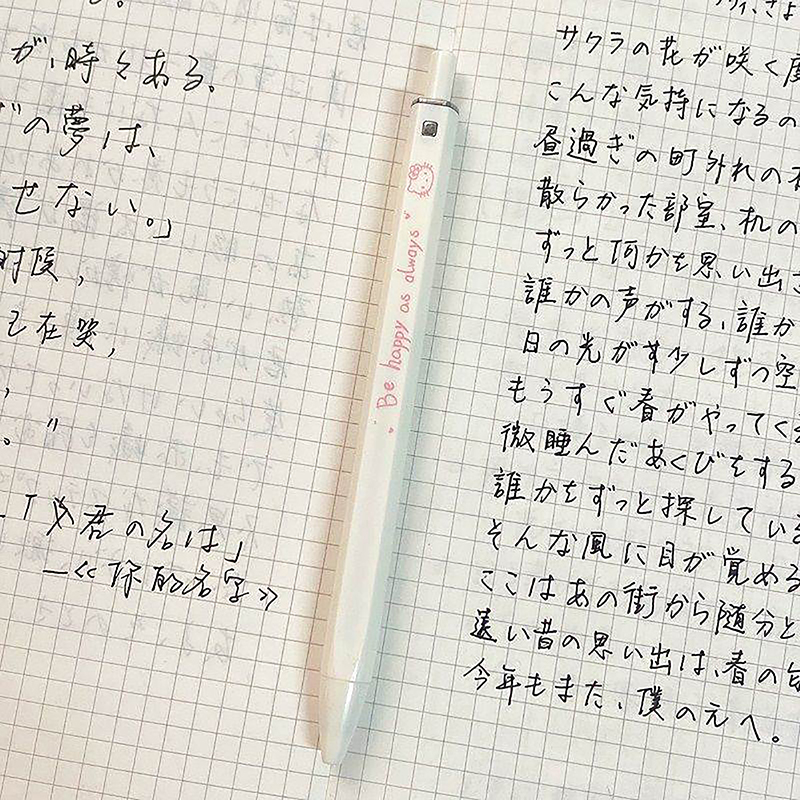 が、時々ある。
の夢は、
せない。」
时候，
己在哭，
，
。”
「君の名は」
—《你的名字》
Be happy as always
サクラの花が咲く度
こんな気持になるの
昼過ぎの町外れの
散らかった部室、机の
ずっと何かを思い出
誰かの声がする、誰か
日の光が少しずつ空
もうすぐ春がやってく
微睡んだあくびをする
誰かをずっと探している
そんな風に目が覚める
ここはあの街から随分と
遠い昔の思い出は、春の
今年もまた、僕の元へ。